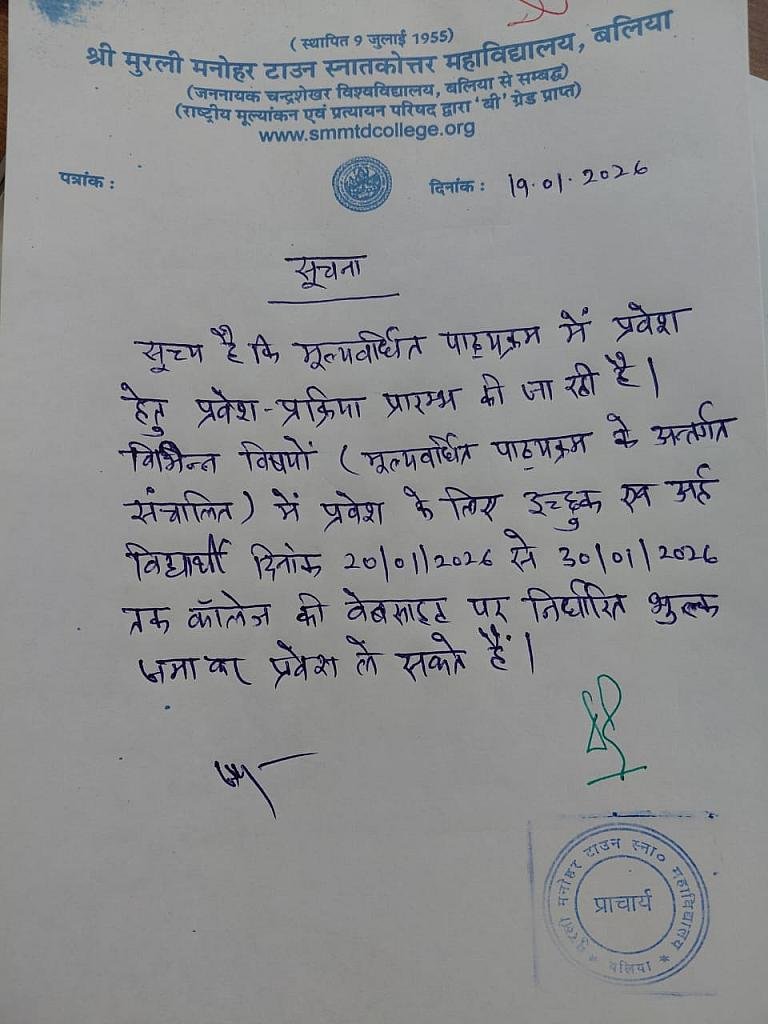 ( स्थापित 9 जुलाई 1955)
श्री मुरली मनोहर टाउन स्नातकोत्तर महाविद्यालय, बलिया
(जननायक चन्द्रशेखर विश्वविद्यालय, बलिया से सम्बद्ध)
(राष्ट्रीय मूल्यांकन एवं प्रत्यायन परिषद द्वारा 'बी' ग्रेड प्राप्त)
www.smmtdcollege.org
पत्रांक :
दिनांक : 19.01.2026
सूचना
सूच्य है कि मूल्यवर्धित पाठ्यक्रम में प्रवेश
हेतु प्रवेश-प्रक्रिया प्रारम्भ की जा रही है।
विभिन्न विषयों (मूल्यवर्धित पाठ्यक्रम के अन्तर्गत
संचालित) में प्रवेश के लिए इच्छुक एव अर्ह
विद्यार्थी दिनांक 20/01/2026 से 30/01/2026
तक कॉलेज की वेबसाइट पर निर्धारित शुल्क
जमा कर प्रवेश ले सकते हैं।
मुरली मनोहर टाउन स्ना० महाविद्यालय
प्राचार्य
* बलिया *